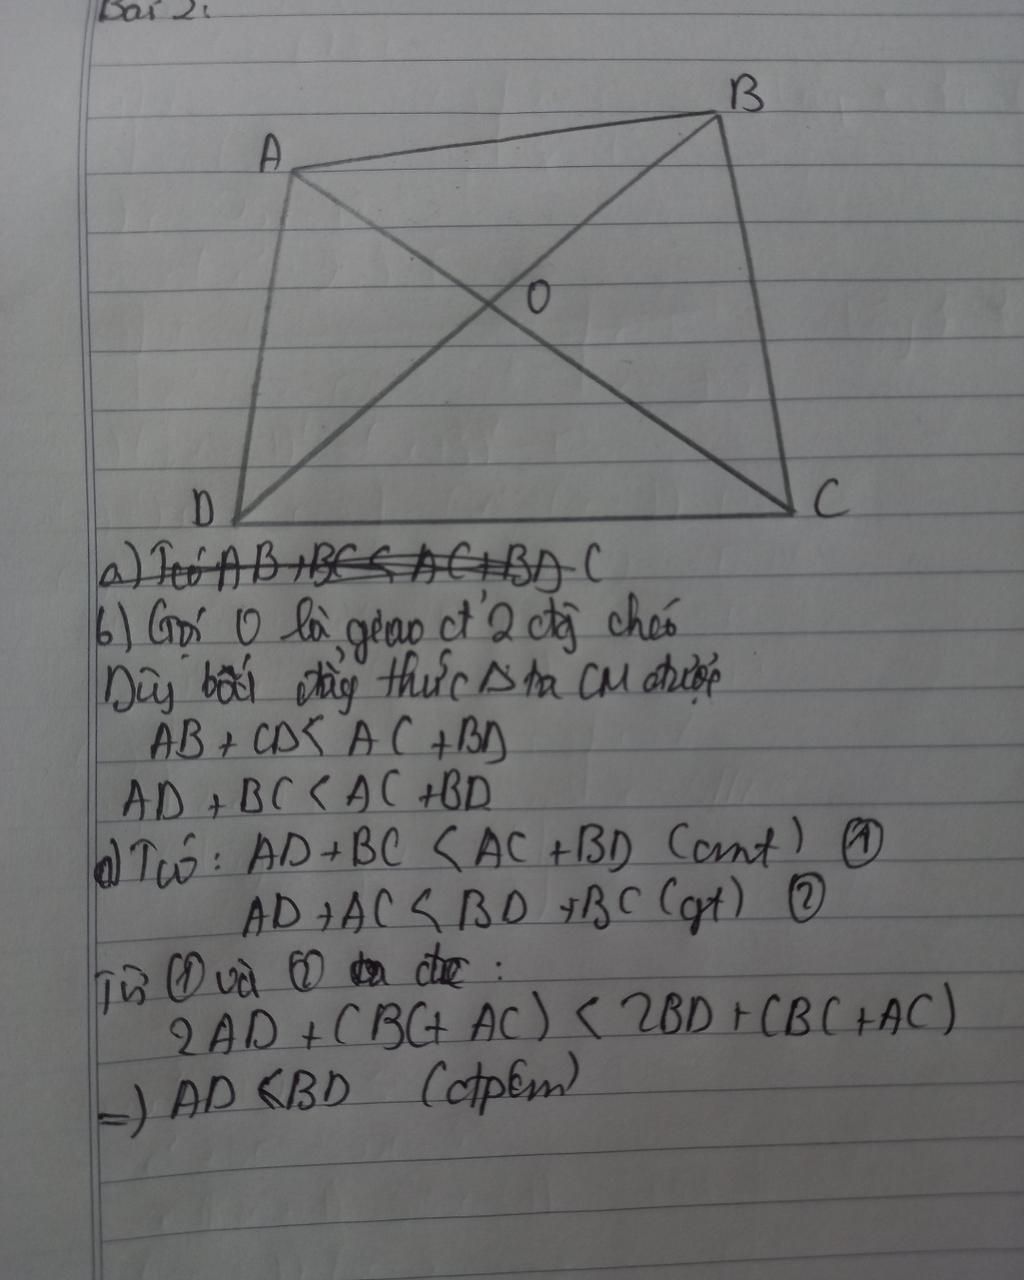 Bài 2:
A
B
O
D
C
a) Tcó AB + BC < AC + BD C
b) Gọi O là giao đ' 2 đg chéo
Dùg bất đẳg thức Δ ta CM được
AB + CD < AC + BD
AD + BC < AC + BD
a) Tcó: AD + BC < AC + BD (cmt) ①
AD + AC < BD + BC (gt) ②
Từ ① và ② ta đc:
2AD + (BC + AC) < 2BD + (BC + AC)
=) AD < BD (đpcm)